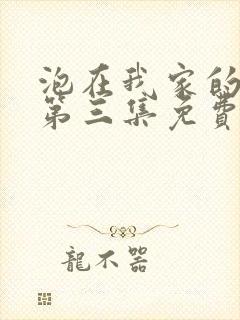 泡在我家的
第三集免費
龍不器